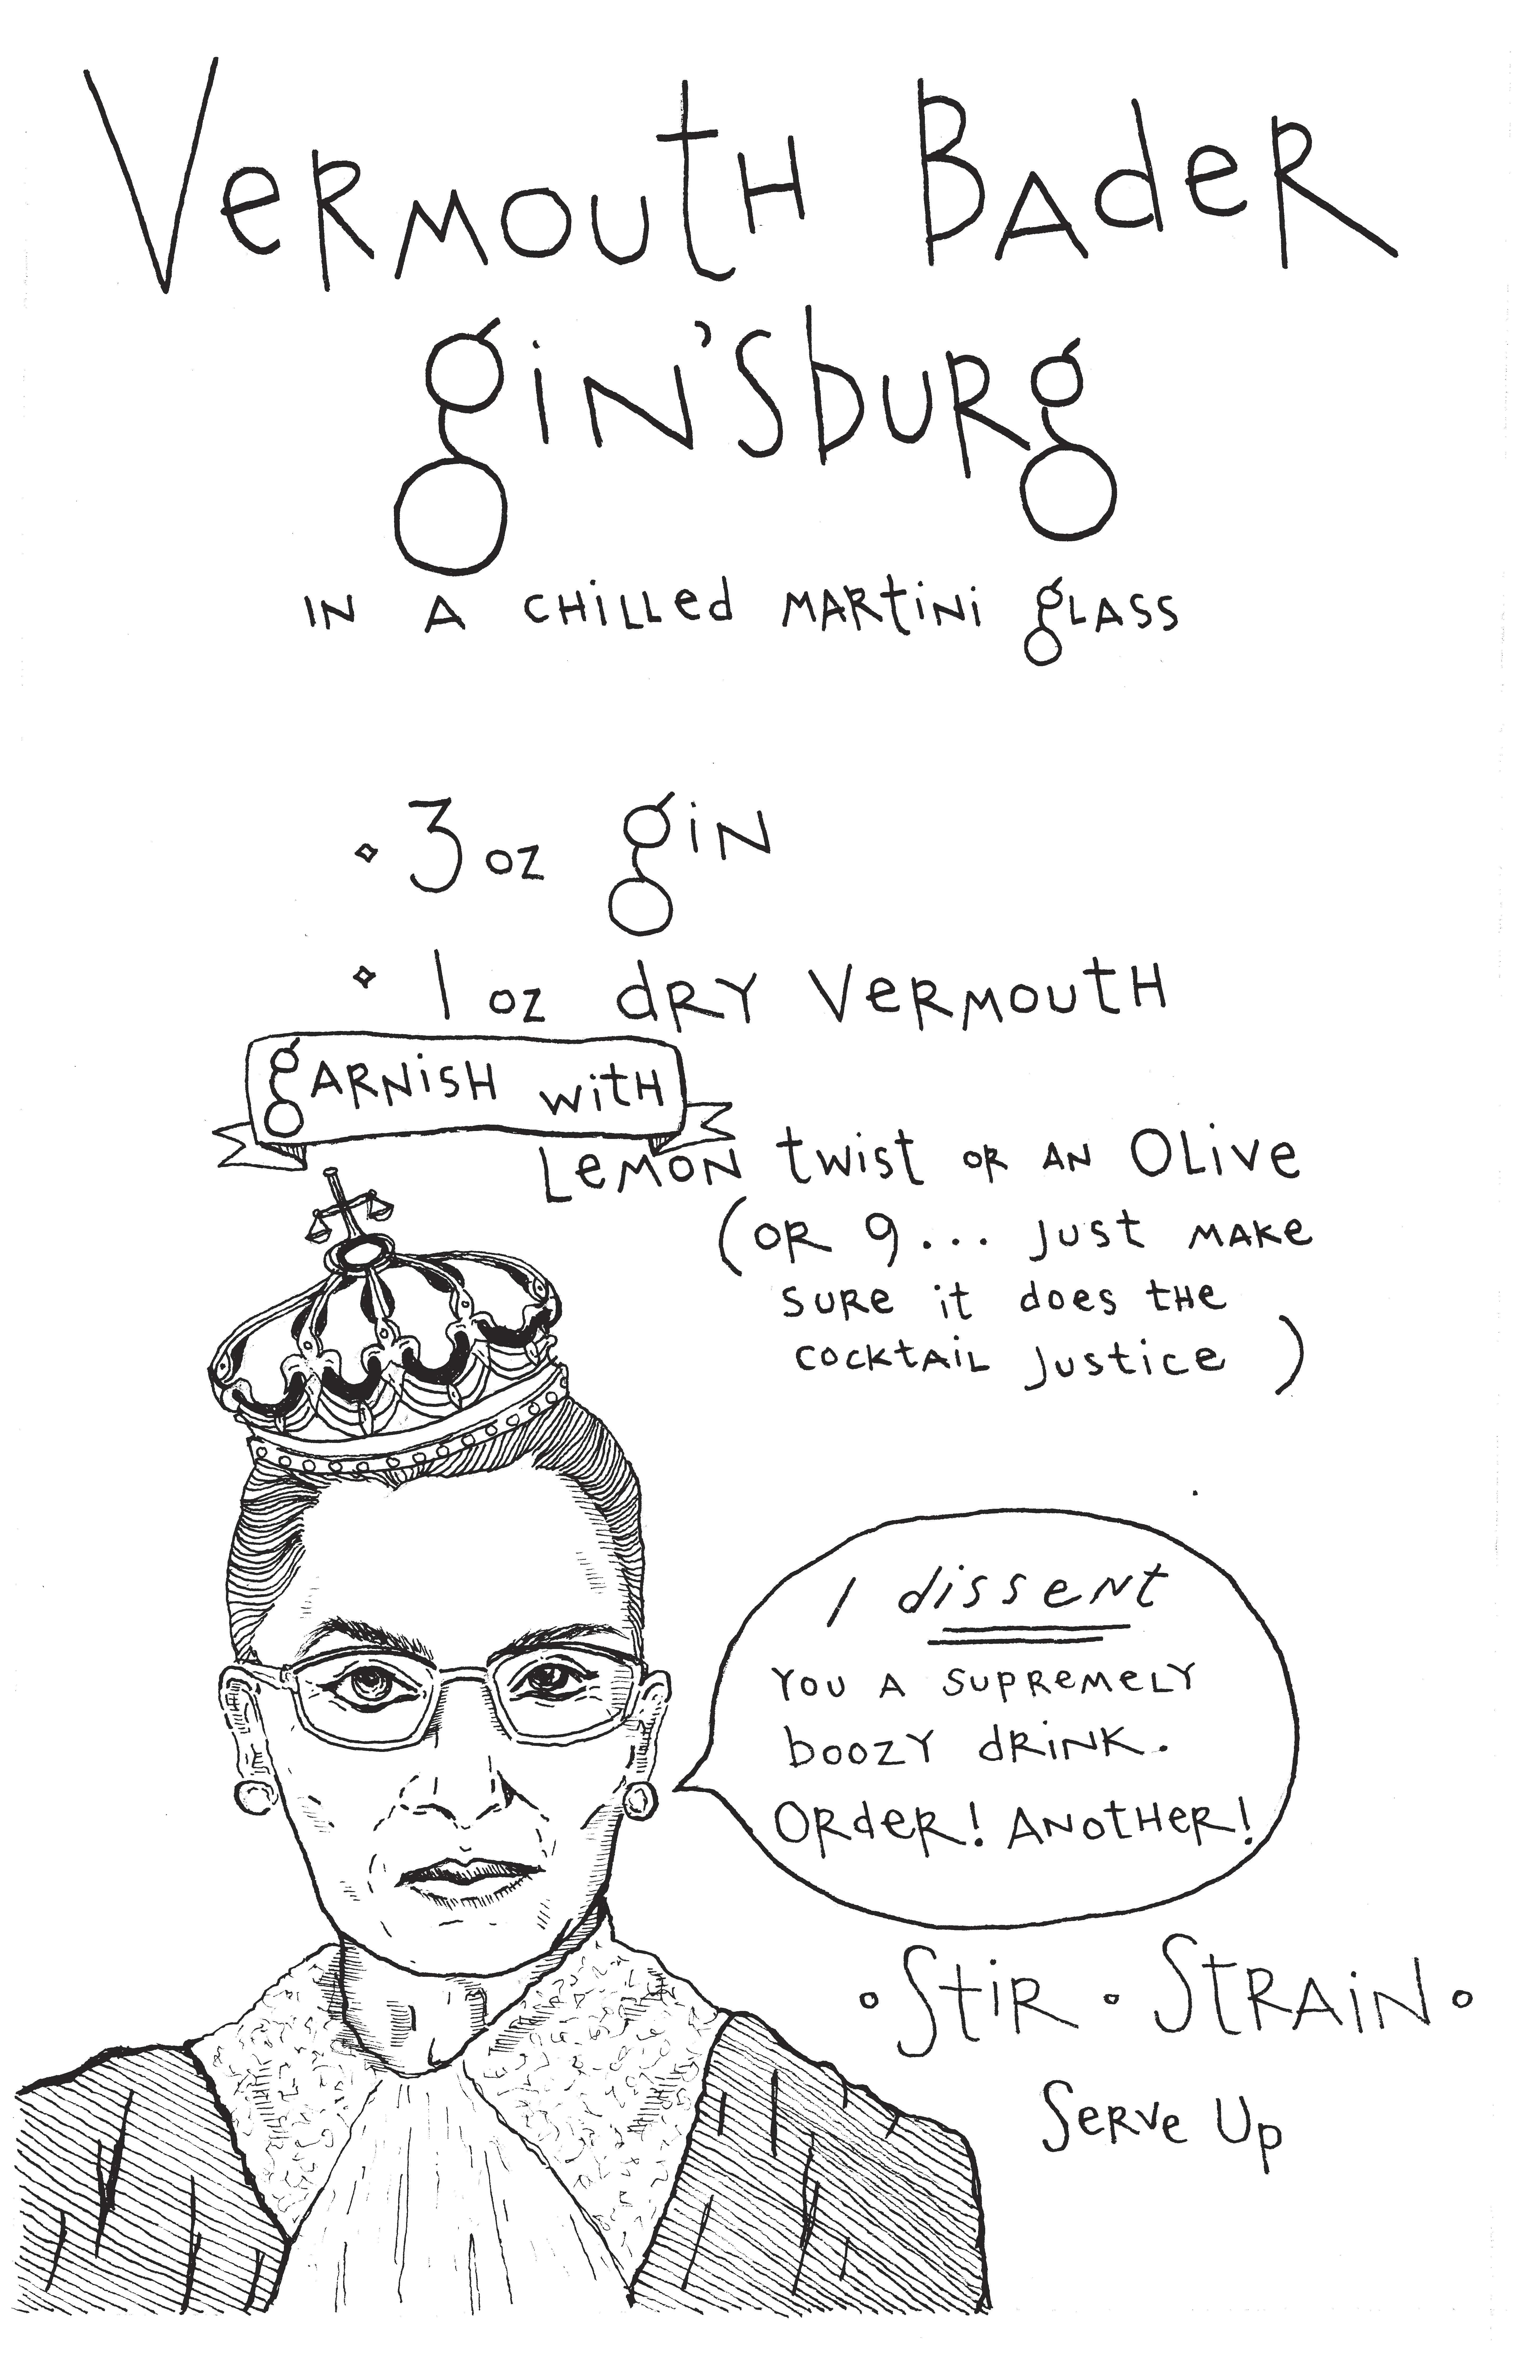 Vermouth Bader
gin'sburg
in a chilled martini glass
3 oz gin
1 oz dry vermouth
garnish with
Lemon twist or an Olive
(or 9... just make
sure it does the
cocktail justice)
I dissent
you a supremely
boozy drink.
Order! Another!
•Stir • Strain•
Serve Up